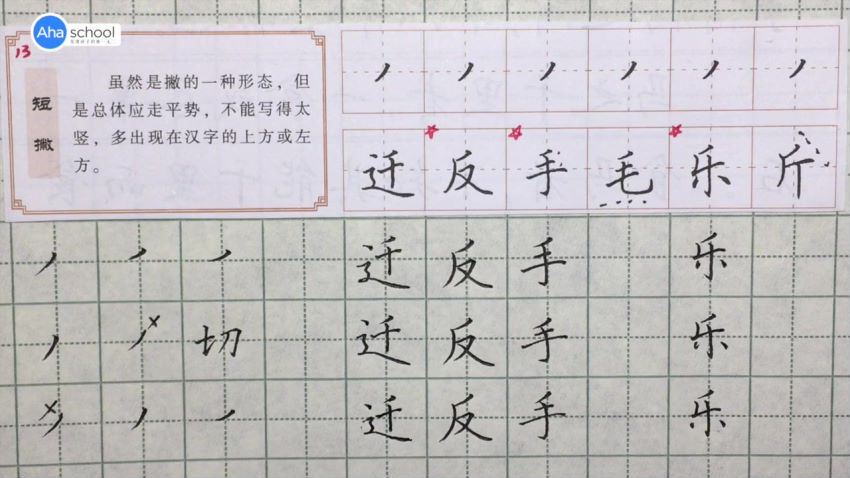 Aha school
13
短撇
虽然是撇的一种形态，但
是总体应走平势，不能写得太
竖，多出现在汉字的上方或左
方。
迁 反 手 毛 乐 斤
迁 反 手 乐
切 迁 反 手 乐
迁 反 手 乐